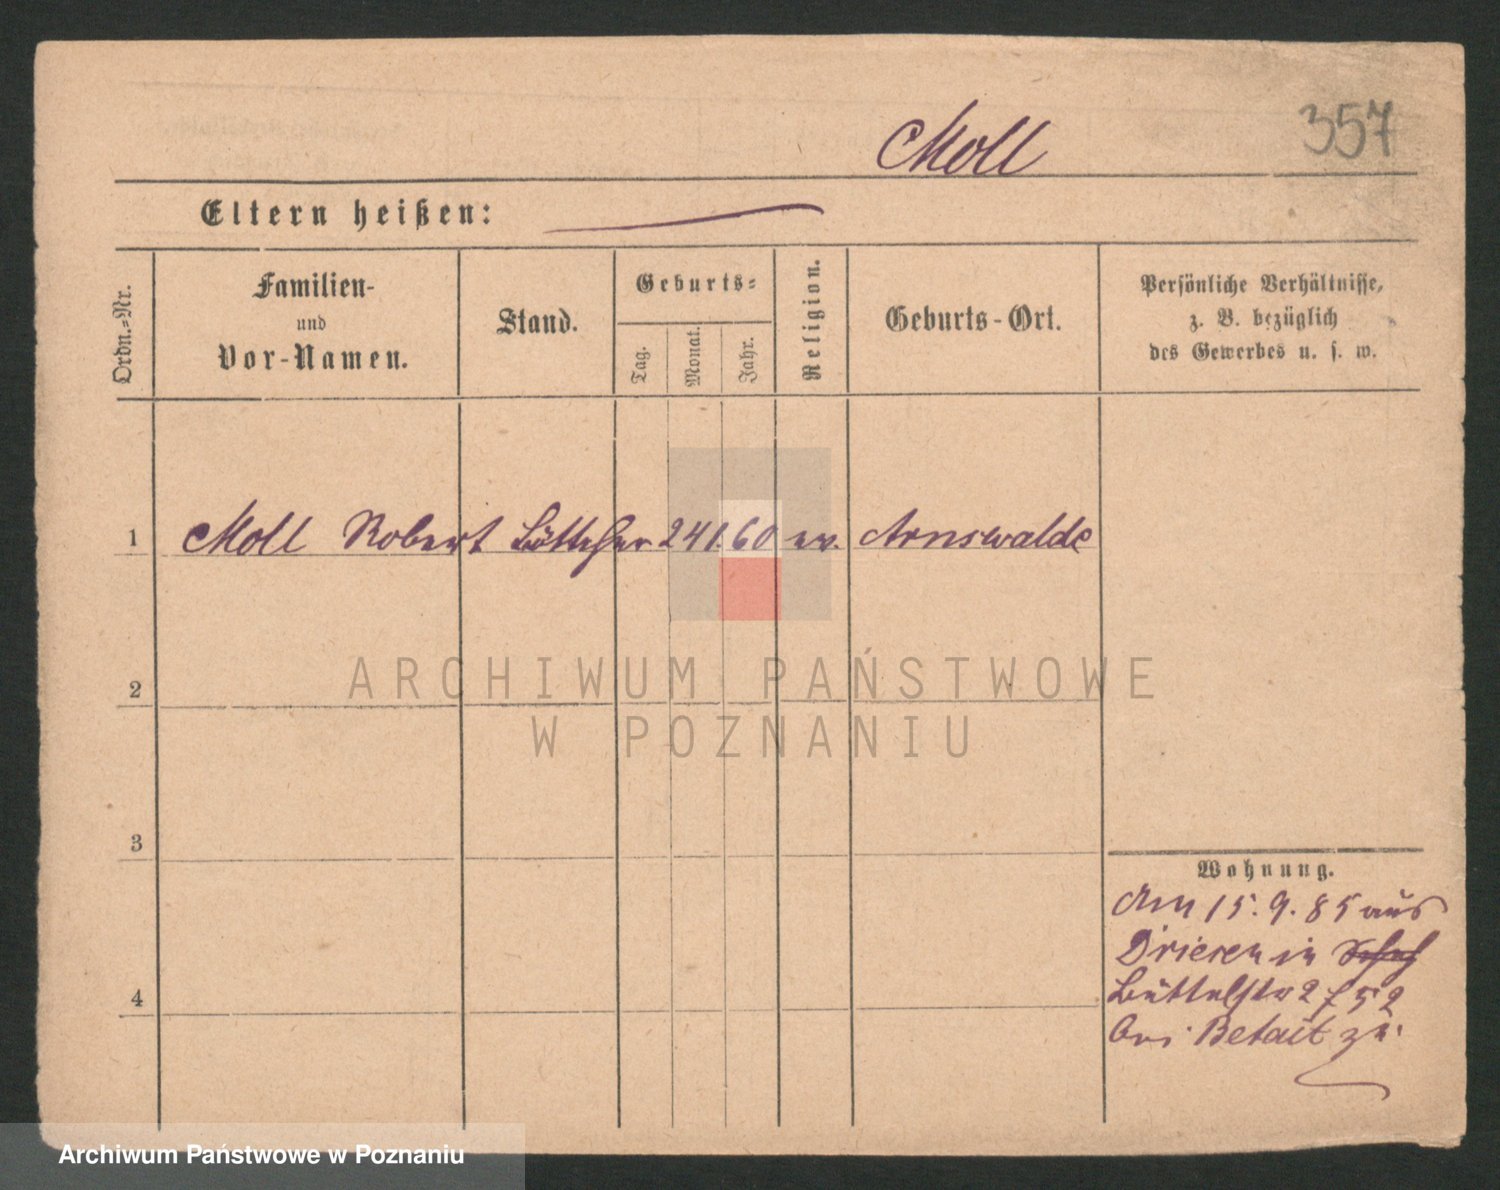 Moll
357
Eltern heißen:
Ordn.-Nr.
Familien-
und
Vor-Namen.
Stand.
Geburts-
Tag.
Monat.
Jahr.
Religion.
Geburts-Ort.
Persönliche Verhältnisse,
z. B. bezüglich
des Gewerbes u. s. w.
1 Moll Robert Böttcher 24 1. 60 ev. Arnswalde
2
ARCHIWUM PAŃSTWOWE
W POZNANIU
3
4
Wohnung.
Am 15. 9. 85 aus
Driesen in
Büttelstr
bei Betait zu.
Archiwum Państwowe w Poznaniu